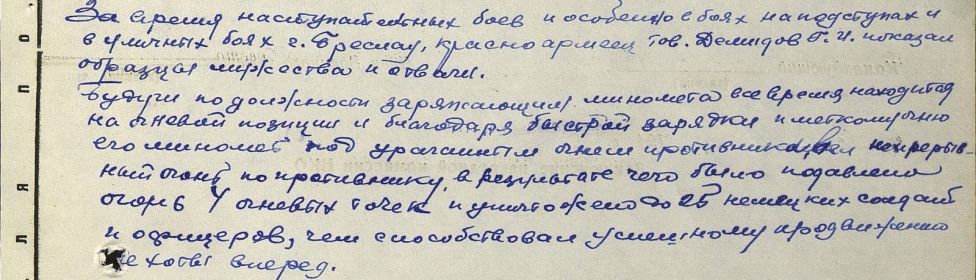 За время наступательных боев и особенно в боях на подступах и
в уличных боях г. Бреслау, красноармеец тов. Демидов Г. И. показал
образцы мужества и отваги.
Будучи по должности заряжающим миномета все время находится
на огневой позиции и благодаря быстрой зарядки и меткому огню
его миномет под ураганным огнем противника вел непрерыв-
ный огонь по противнику, в результате чего было подавлено
огонь 4 огневых точек и уничтожено до 25 немецких солдат
и офицеров, чем способствовал успешному продвижению
пехоты вперед.